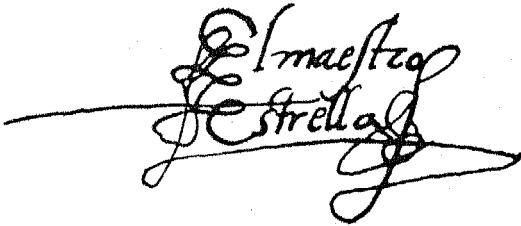 El maestro
Estrella